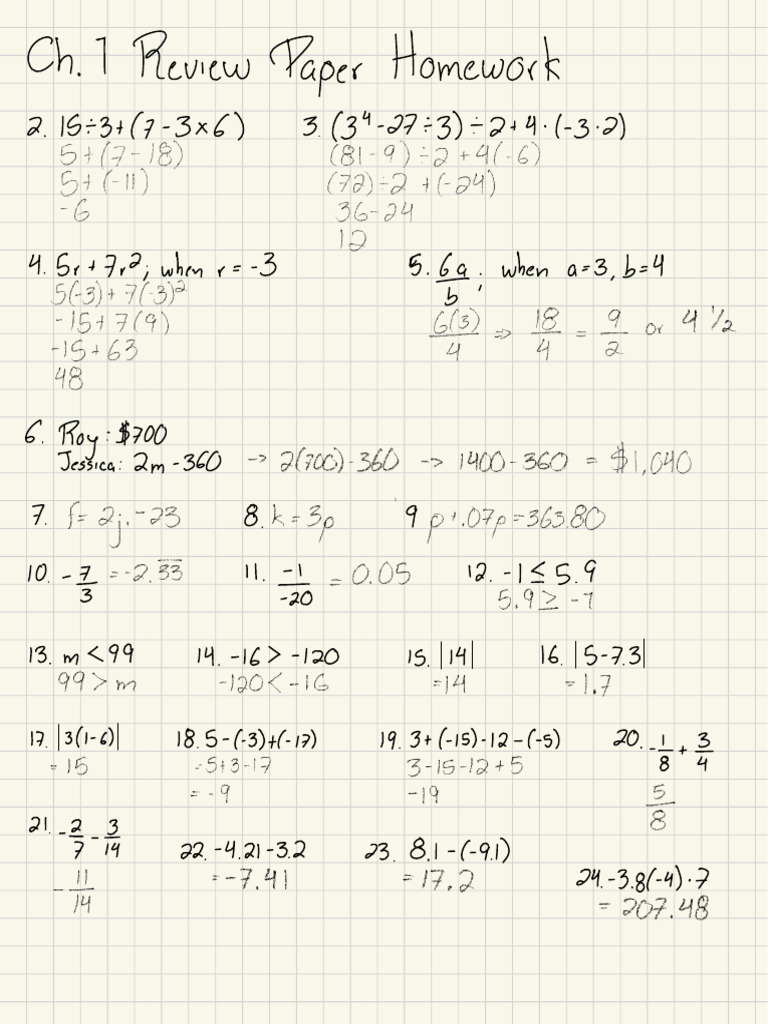 Ch. 1 Review Paper Homework
2. 15÷3+(7-3×6)
5+(7-18)
5+(-11)
-6
3. (3⁴-27÷3)÷2+4·(-3·2)
(81-9)÷2+4(-6)
(72)÷2+(-24)
36-24
12
4. 5r+7r²; when r=-3
5(-3)+7(-3)²
-15+7(9)
-15+63
48
5. 6a/b; when a=3, b=4
6(3)/4 ⇒ 18/4 = 9/2 or 4 1/2
6. Roy: $700
Jessica: 2m-360 → 2(700)-360 → 1400-360 = $1,040
7. f=2j-23 8. k=3p 9 p+.07p=363.80
10. -7/3 = -2.33 11. -1/-20 = 0.05 12. -1≤5.9
5.9≥-1
13. m<99 14. -16>-120 15. |14| 16. |5-7.3|
99>m -120<-16 =14 =1.7
17. |3(1-6)| 18. 5-(-3)+(-17) 19. 3+(-15)-12-(-5) 20. -1/8+3/4
=15 =5+3-17 3-15-12+5
=-9 -19 5/8
21. -2/7-3/14 22. -4.21-3.2 23. 8.1-(-9.1)
-11/14 =-7.41 =17.2 24. -3.8(-4)·7
=207.48